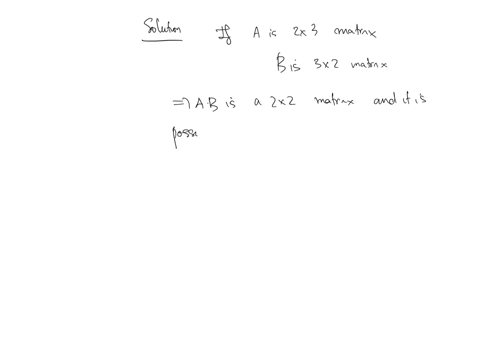 Solution If A is 2x3 matrix
B is 3x2 matrix
=> AB is a 2x2 matrix and it is
posse